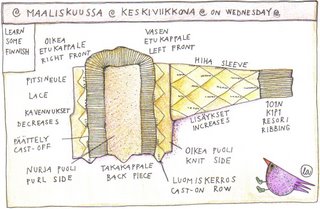 @ MAALISKUUSSA @ KESKIVIIKKONA @ ON WEDNESDAY @
LEARN
SOME
FINNISH
OIKEA
ETUKAPPALE
RIGHT FRONT
VASEN
ETUKAPPALE
LEFT FRONT
HIHA SLEEVE
PITSINEULE
LACE
KAVENNUKSET
DECREASES
PÄÄTTELY
CAST-OFF
NURJA PUOLI
PURL SIDE
TAKAKAPPALE
BACK PIECE
LISÄYKSET
INCREASES
OIKEA PUOLI
KNIT SIDE
LUOMISKERROS
CAST-ON ROW
RESORI
RIBBING